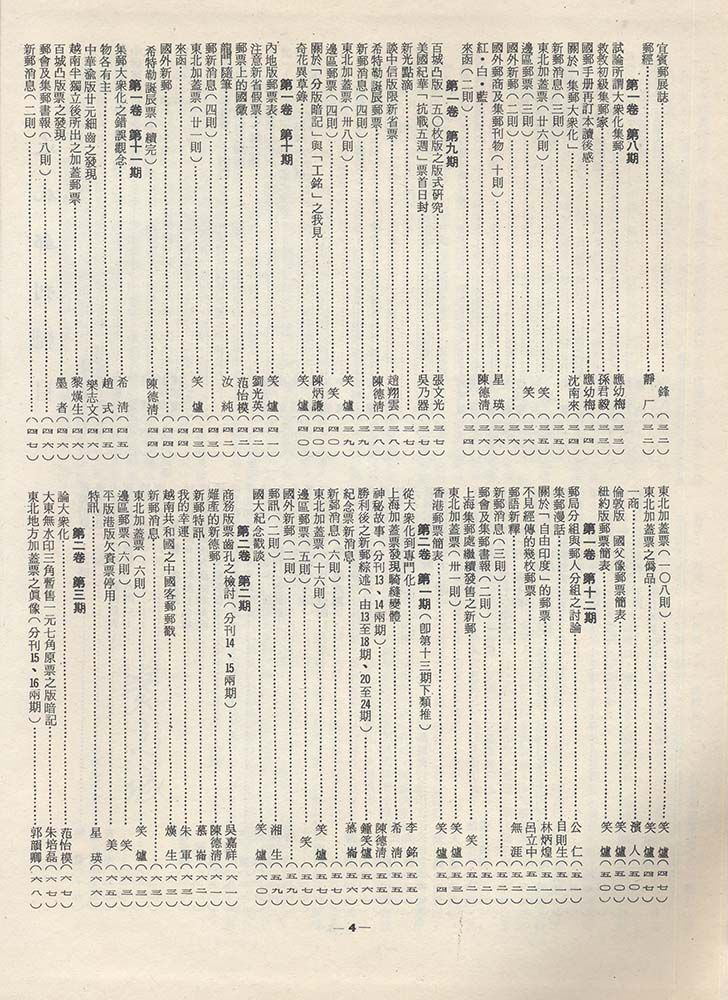 宜賓郵展誌……鋒(三二)
郵經……靜厂(三二)
第一卷 第八期
試論所謂大衆化集郵……應幼梅(三三)
救救初級集郵家……孫君毅(三三)
國郵手册再訂本讀後感……應幼梅(三四)
關於「集郵大衆化」……沈南來(三四)
新郵消息(三則)
東北加蓋票(廿六則)……笑爐(三五)
邊區郵票(三則)……笑(三五)
國外新郵(二則)
國外郵商及集郵刊物(十則)……星瑛(三六)
紅・白・藍……陳德清(三六)
來函(二則)
第一卷 第九期
百城凸版一五〇枚版之版式研究……張文光(三七)
美國紀華「抗戰五週」票首日封……吳乃器(三七)
新光點滴
談中信版限新省票……趙翔雲(三八)
希特勒誕辰郵票……陳德清(三八)
新郵消息(四則)……(三九)
東北加蓋票(卅八則)……笑爐(三九)
邊區郵票(四則)……笑(四〇)
關於「分版暗記」與「工銘」之我見……陳炳謙(四〇)
奇花異草錄……笑爐(四〇)
第一卷 第十期
內地版郵票表……笑爐(四一)
注意新省假票……劉光英(四二)
郵票上的國徽……范怡模(四二)
龍門隨筆……汝純(四二)
郵新消息(四則)
東北加蓋票(廿一則)……笑爐(四三)
來函……(四四)
國外新郵……(四四)
希特勒誕辰票(續完)……陳德清(四四)
第一卷 第十一期
集郵大衆化之錯誤觀念……希清(四五)
物各有主……趙式(四五)
中華龠版廿元細齒之發現……樂志文(四六)
越南半獨立後所出之加蓋郵票……黎熯生(四六)
百城凸版票之發現……墨者(四六)
郵會及集郵書報(八則)
新郵消息(二則)……(四七)
東北加蓋票(一〇八則)……笑爐(四七)
東北加蓋票之僞品……笑爐(四九)
一商……濱人(五〇)
倫敦版 國父像郵票簡表……笑爐(五〇)
紐約版郵票簡表……笑爐(五〇)
第一卷 第十二期
郵局分組與郵人分組之討論……公仁(五一)
集郵漫話……目則生(五一)
關於「自由印度」的郵票……林炳煌(五一)
不見經傳的幾枚郵票……呂立中(五二)
郵語新釋……無涯(五二)
新郵消息(三則)
郵會及集郵書報(二則)
上海集郵處繼續發售之新郵……笑
東北加蓋票(卅一則)……笑爐(五三)
香港郵票簡表……笑爐(五四)
第二卷 第一期(卽第十三期下類推)
從大衆化到專門化……李銘(五五)
上海加蓋票發現騎縫變體……希清(五五)
神秘故事(分刊13、14兩期)……陳德清(五五)
勝利後之新郵綜述(由13至18期、20至24期)……鍾笑爐(五五)
紀念票新消息……慕崙(五六)
新郵消息(六則)
東北加蓋票(十六則)……笑爐(五七)
邊區郵票(五則)……笑(五九)
國外新郵(二則)……(五九)
郵訊(二則)……湘生(五九)
國大紀念戳談……笑爐(六〇)
第二卷 第二期
商務版票齒孔之檢討(分刊14、15兩期)……吳嘉祥(六一)
難產的新德郵……陳德清(六一)
新郵特訊……慕崙(六二)
我的幸運……朱軍(六二)
越南共和國之中國客郵郵戳……熯生(六二)
新郵消息
東北加蓋票(六則)……笑爐(六三)
邊區郵票(六則)……笑(六三)
平版港版欠資票停用……美(六五)
特訊……星瑛(六六)
第二卷 第三期
論大衆化……范怡模(六七)
大東無水印三角暫售一元七角原票之版暗記……朱培磊(六七)
東北地方加蓋票之眞像(分刊15、16兩期)……郭韻卿(六八)
—4—